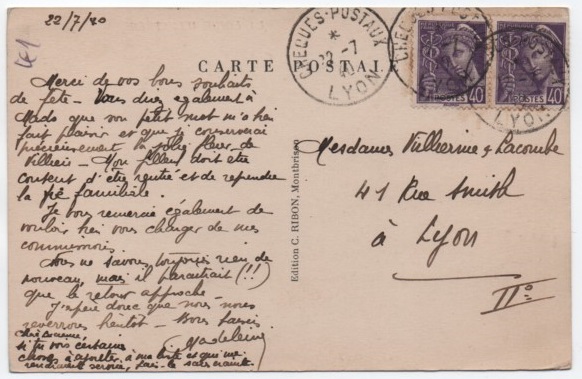 22/7/40
CARTE POSTALE
CHEQUES-POSTAUX
LYON
POSTES 40
POSTES 40
Merci de vos bons souhaits
de fête - Vous direz également à
Mado que son petit mot m'a
fait plaisir et que je conserverai
précieusement la jolie fleur de
Villiers - Mon filleul doit être
content d'être rentré et de reprendre
la vie familiale.
Je vous remercie également de
vouloir bien vous charger de mes
commissions.
Nous ne savons toujours rien de
nouveau, mais il paraîtrait (!!)
que le retour approche -
J'espère donc que nous nous
reverrons bientôt - Bons baisers
si tu vois certaine
chose à ajouter à ma liste et qui me
rendraient service, fais-le sans crainte.
Edition C. RIBON, Montbrison
Mesdames Vullierme & Lacombe
41 Rue Smith
à Lyon
IIº